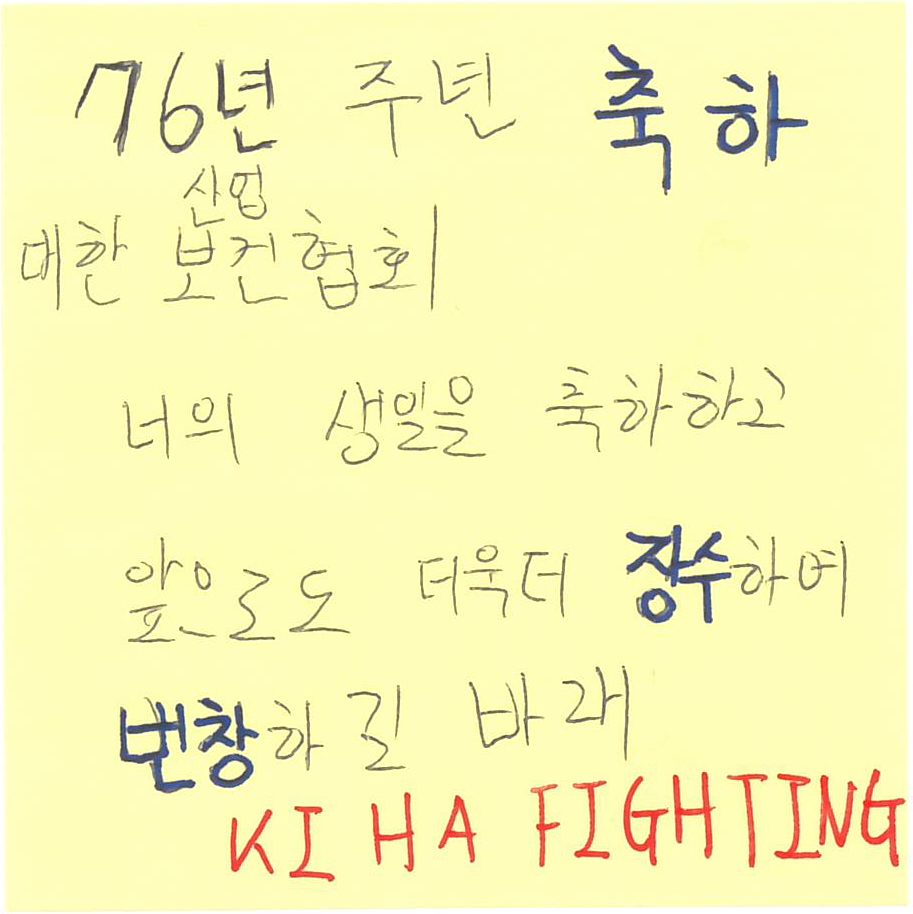 76년 주년 축하
산업
대한 보건협회
너의 생일을 축하하고
앞으로도 더욱더 장수하여
번창하길 바래
KIHA FIGHTING